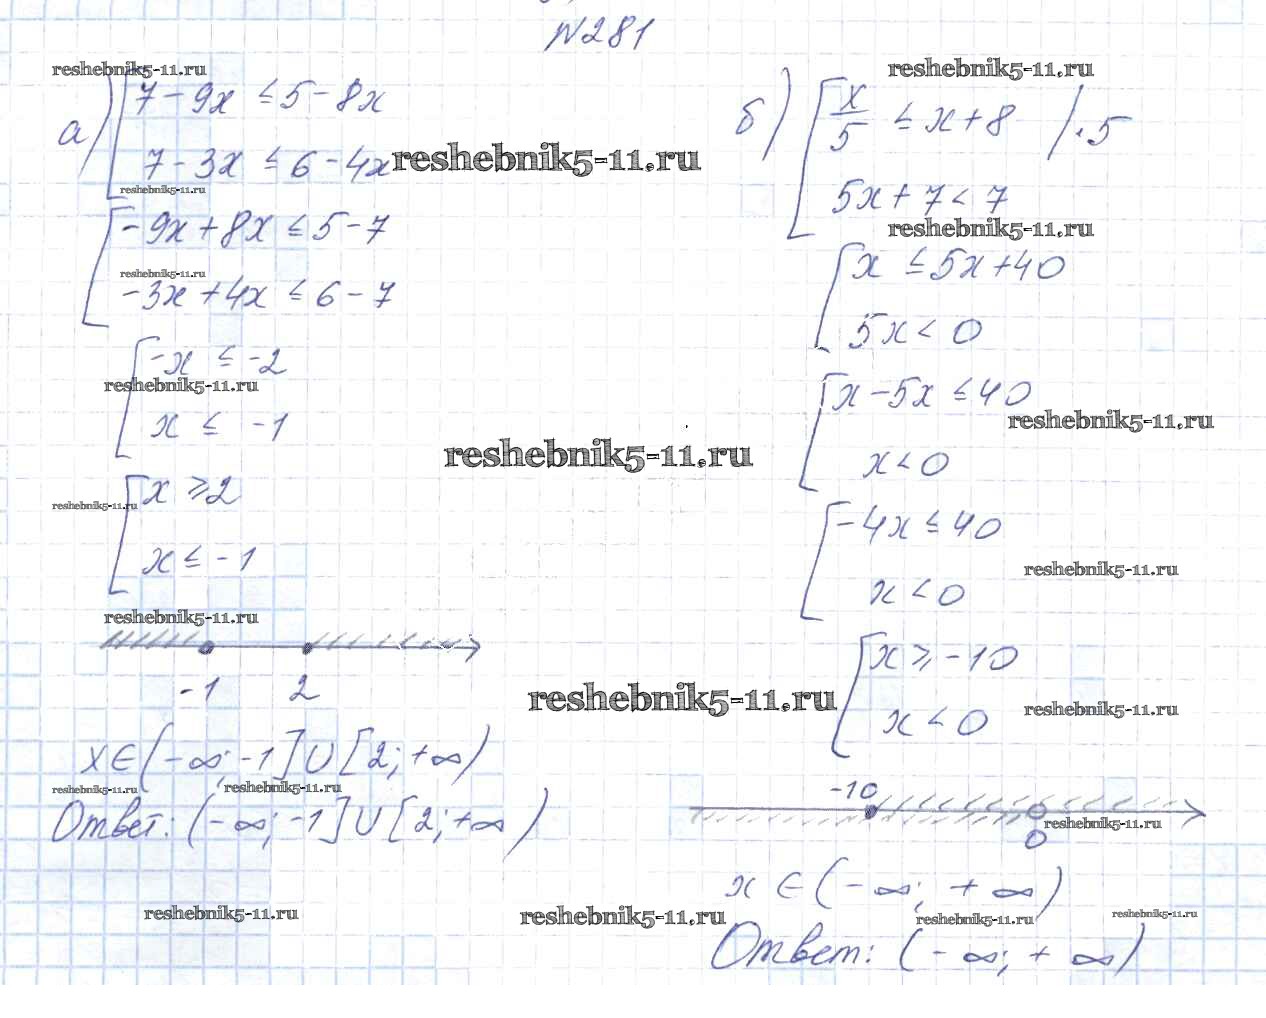 №281
reshebnik5-11.ru
а) [ 7 - 9x ≤ 5 - 8x
7 - 3x ≤ 6 - 4x
reshebnik5-11.ru
reshebnik5-11.ru
[ -9x + 8x ≤ 5 - 7
reshebnik5-11.ru
-3x + 4x ≤ 6 - 7
[ -x ≤ -2
reshebnik5-11.ru
x ≤ -1
reshebnik5-11.ru
[ x ≥ 2
reshebnik5-11.ru
x ≤ -1
reshebnik5-11.ru
-1 2
x ∈ (-∞; -1] ∪ [2; +∞)
reshebnik5-11.ru
reshebnik5-11.ru
Ответ: (-∞; -1] ∪ [2; +∞)
reshebnik5-11.ru
reshebnik5-11.ru
б) [ x/5 ≤ x + 8 / · 5
5x + 7 < 7
reshebnik5-11.ru
[ x ≤ 5x + 40
5x < 0
[ x - 5x ≤ 40
reshebnik5-11.ru
x < 0
[ -4x ≤ 40
reshebnik5-11.ru
x < 0
[ x ≥ -10
reshebnik5-11.ru
reshebnik5-11.ru
x < 0
-10
reshebnik5-11.ru
0
x ∈ (-∞; +∞)
reshebnik5-11.ru
reshebnik5-11.ru
reshebnik5-11.ru
Ответ: (-∞; +∞)